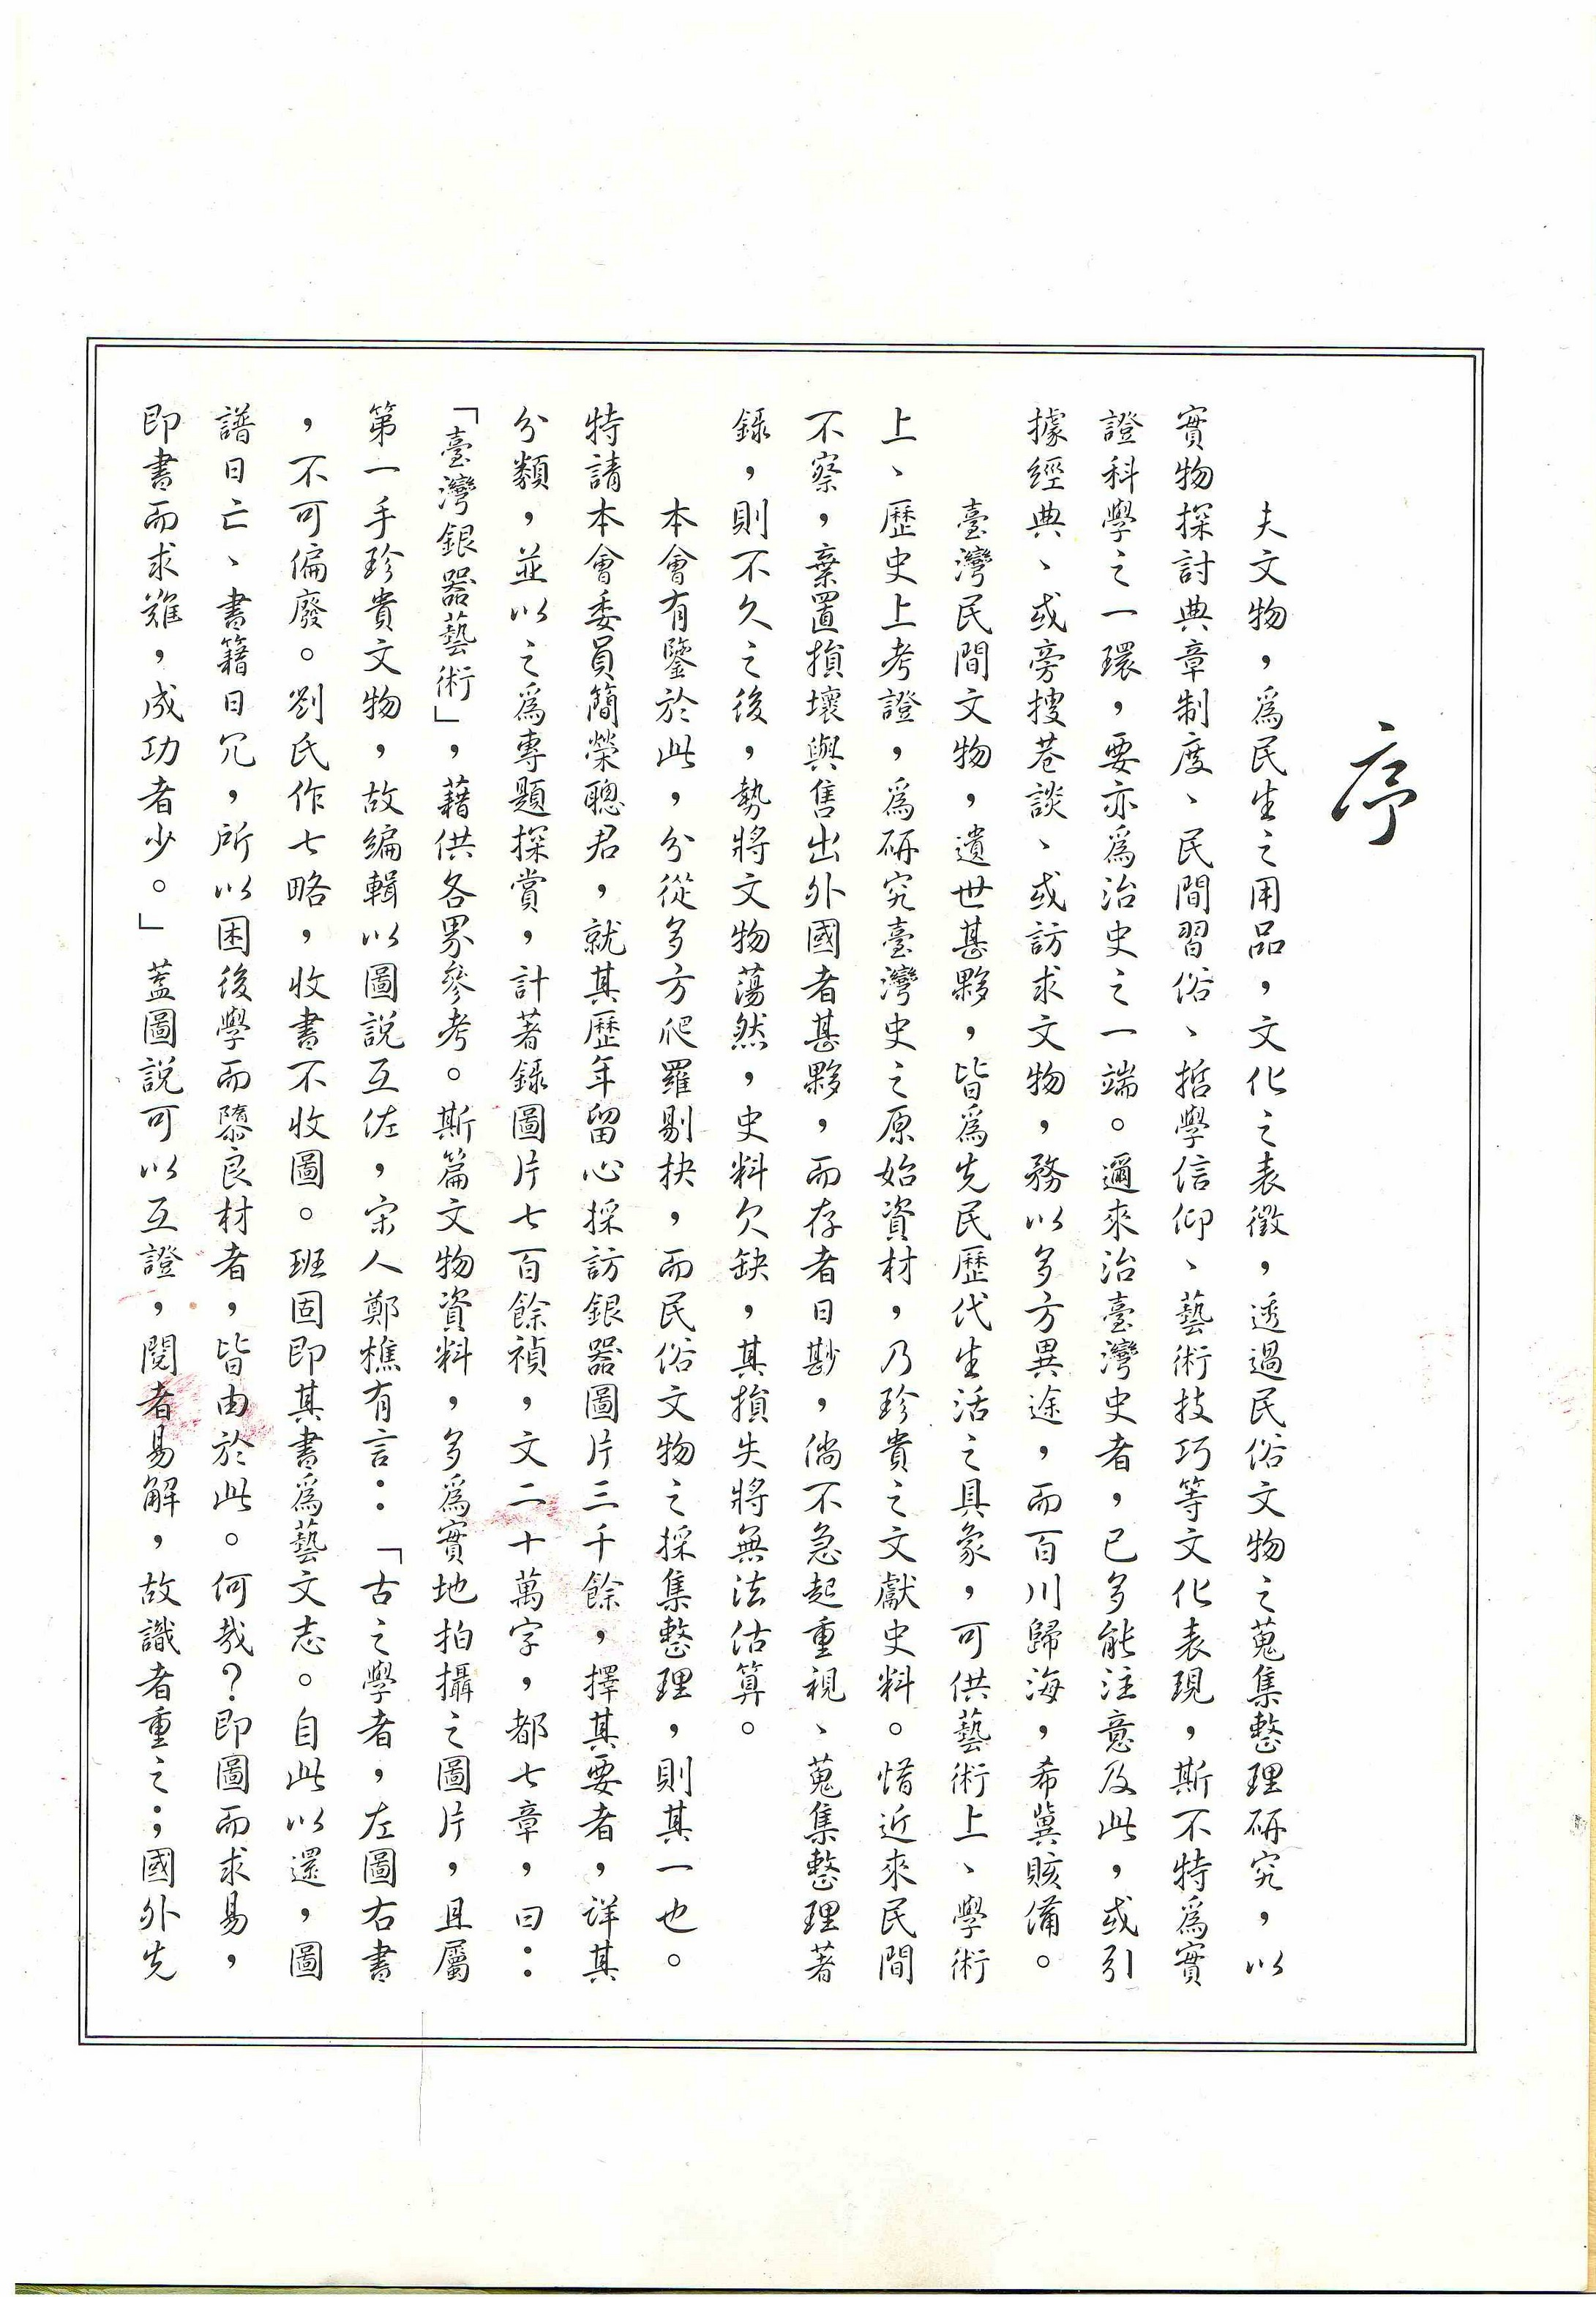 序
夫文物，爲民生之用品，文化之表徵，透過民俗文物之蒐集整理研究，以
實物探討典章制度、民間習俗、哲學信仰、藝術技巧等文化表現，斯不特爲實
證科學之一環，要亦爲治史之一端。邇來治臺灣史者，已多能注意及此，或引
據經典、或旁搜巷談、或訪求文物，務以多方異途，而百川歸海，希冀賅備。
臺灣民間文物，遺世甚夥，皆爲先民歷代生活之具象，可供藝術上、學術
上、歷史上考證，爲研究臺灣史之原始資材，乃珍貴之文獻史料。惜近來民間
不察，棄置損壞與售出外國者甚夥，而存者日尠，倘不急起重視、蒐集整理著
錄，則不久之後，勢將文物蕩然，史料欠缺，其損失將無法估算。
本會有鑒於此，分從多方爬羅剔抉，而民俗文物之採集整理，則其一也。
特請本會委員簡榮聰君，就其歷年留心採訪銀器圖片三千餘，擇其要者，詳其
分類，並以之爲專題探賞，計著錄圖片七百餘禎，文二十萬字，都七章，曰：
「臺灣銀器藝術」，藉供各界參考。斯篇文物資料，多爲實地拍攝之圖片，且屬
第一手珍貴文物，故編輯以圖說互佐，宋人鄭樵有言：「古之學者，左圖右書
，不可偏廢。劉氏作七略，收書不收圖。班固即其書爲藝文志。自此以還，圖
譜日亡、書籍日冗，所以困後學而隳良材者，皆由於此。何哉？即圖而求易，
即書而求難，成功者少。」蓋圖說可以互證，閱者易解，故識者重之；國外先